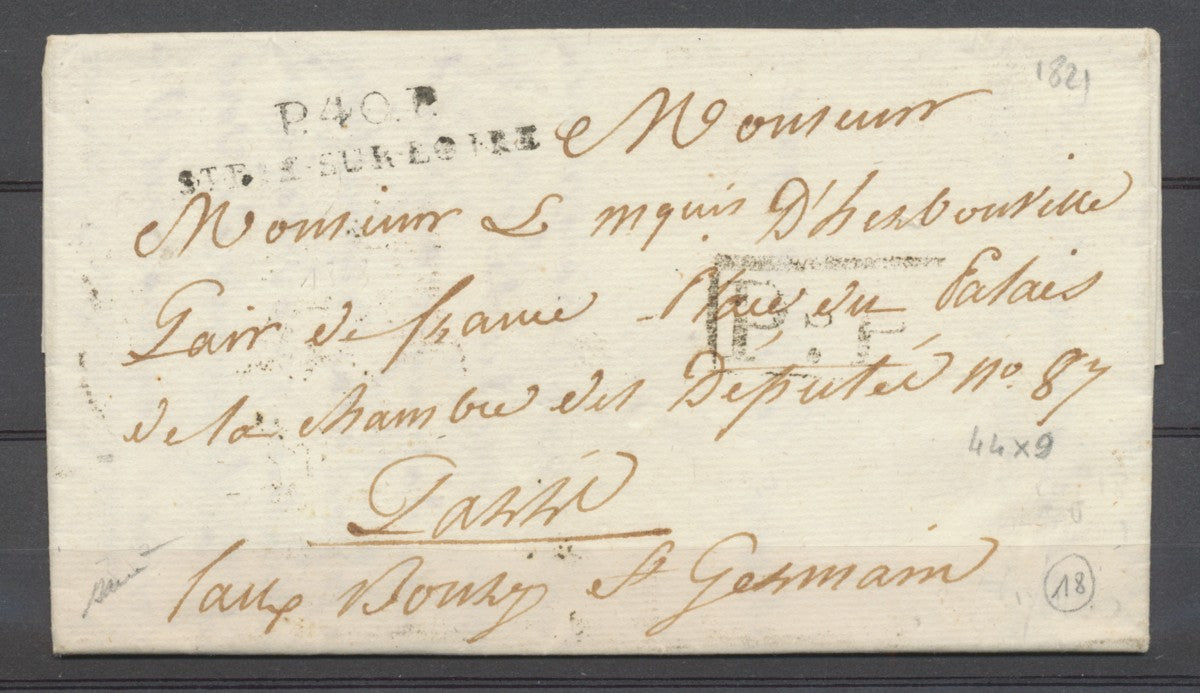 1821
P.40.P.
STE.  SUR-LOIRE
Monsieur
Monsieur Le mquis D'herbouville
Pair de france Place du Palais
P.P.
de la chambre des Députés no. 87
44x9
Paris
faux Bourg St Germain
18